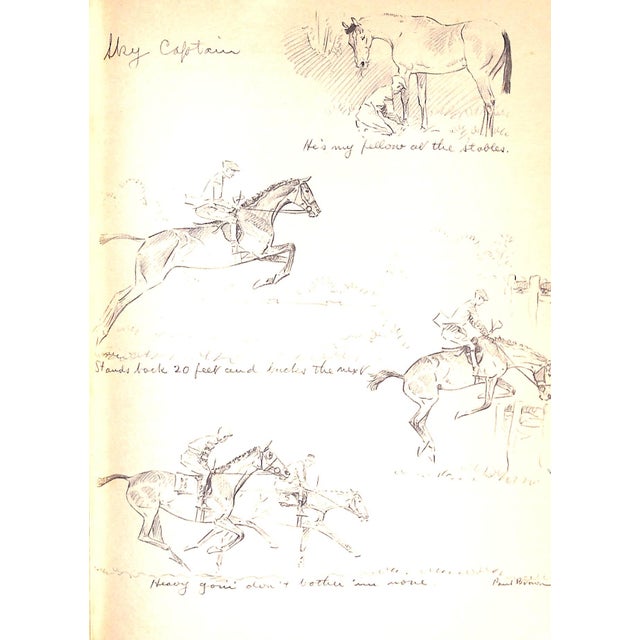 Sky Captain
He's my fellow at the stables.
Stands back 20 feet and bucks the next
Heavy goin' don't bother 'im none
Paul Brown